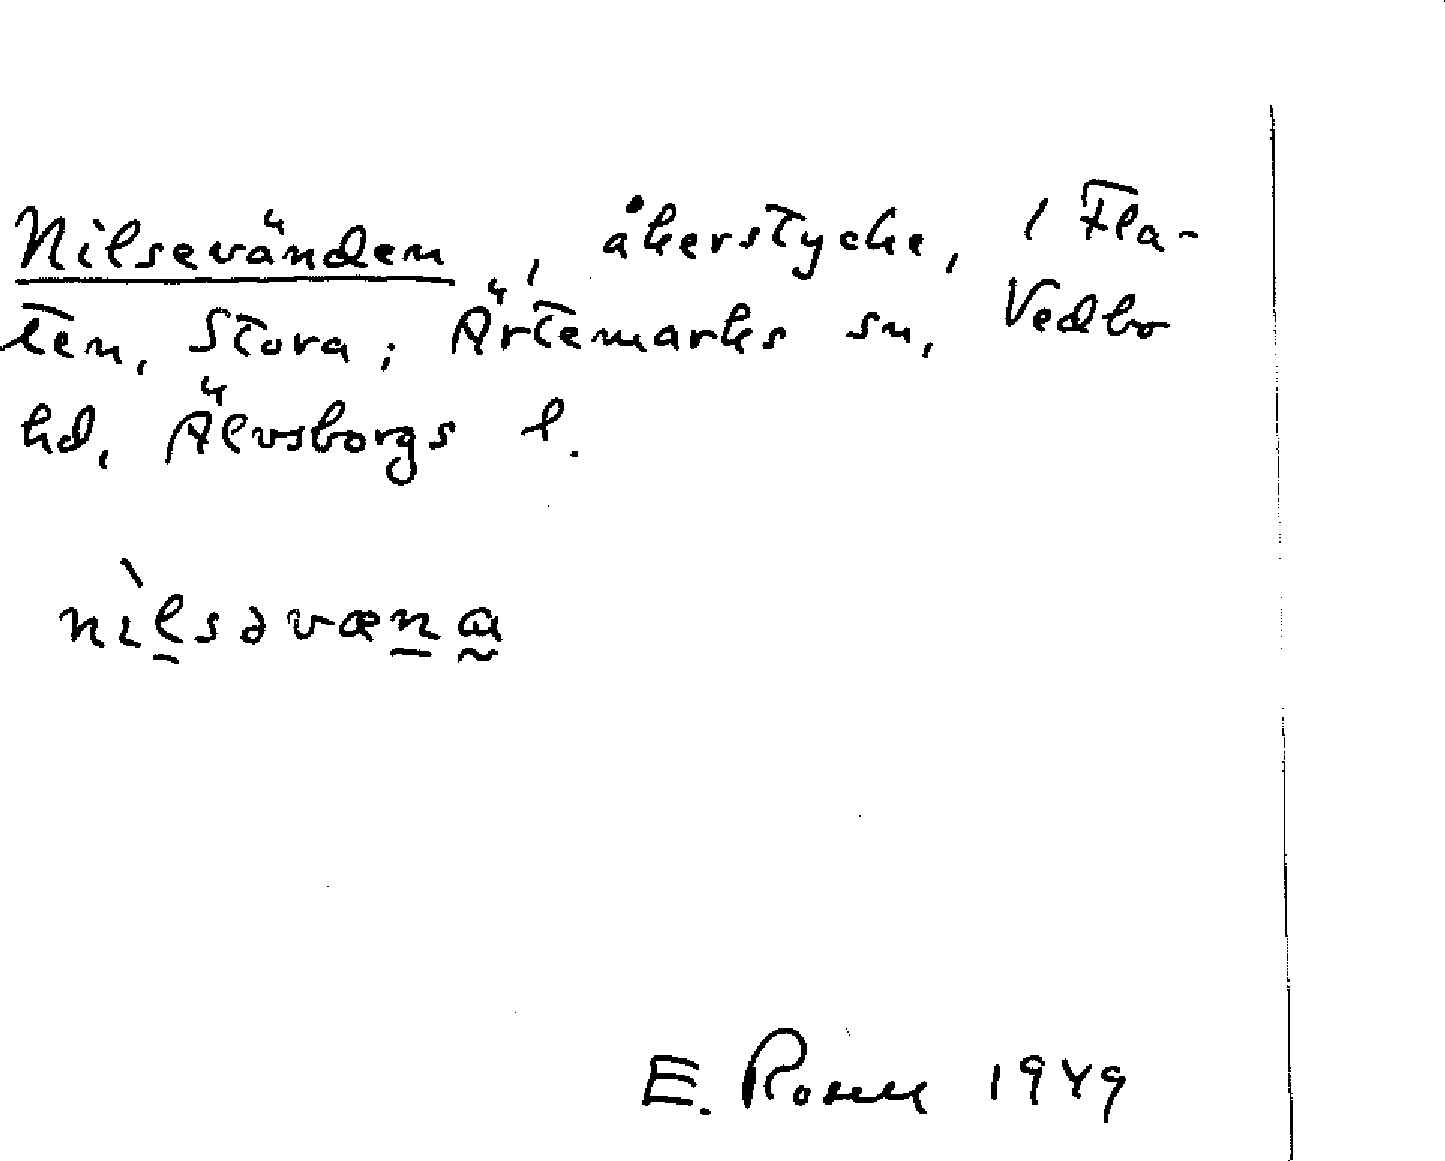 Nilsevänden, åkerstycke, i Fla-
ten, Stora; Ärtemarks sn, Vedbo
hd, Älvsborgs l.
nìl̠səvæn̠a̰
E. Rosell 1949